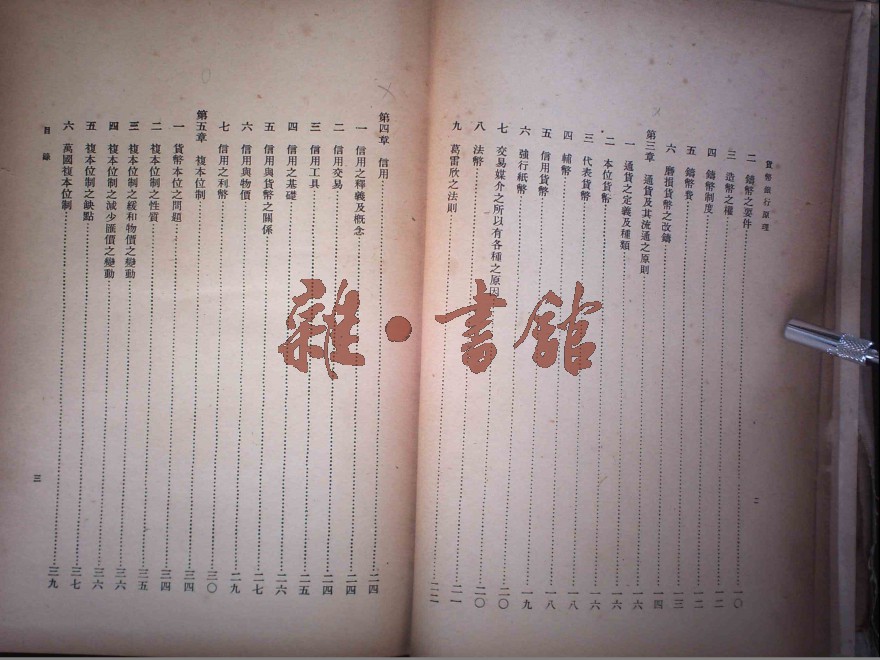 貨幣銀行原理
二 鑄幣之要件……一〇
三 造幣之權……一二
四 鑄幣制度……一二
五 鑄幣費……一三
六 磨損貨幣之改鑄……一四
第三章 通貨及其流通之原則……一六
一 通貨之定義及種類……一六
二 本位貨幣……一六
三 代表貨幣……一八
四 輔幣……一八
五 信用貨幣……一九
六 強行紙幣……二〇
七 交易媒介之所以有各種之原因……二〇
八 法幣……二一
九 葛雷欣之法則……二二
二
第四章 信用……二四
一 信用之釋義及概念……二四
二 信用交易……二四
三 信用工具……二五
四 信用之基礎……二六
五 信用與貨幣之關係……二七
六 信用與物價……二九
七 信用之利弊……三〇
第五章 複本位制……三四
一 貨幣本位之問題……三四
二 複本位制之性質……三五
三 複本位制之緩和物價之變動……三六
四 複本位制之減少匯價之變動……三六
五 複本位制之缺點……三七
六 萬國複本位制……三九
目錄
三
雜·書館